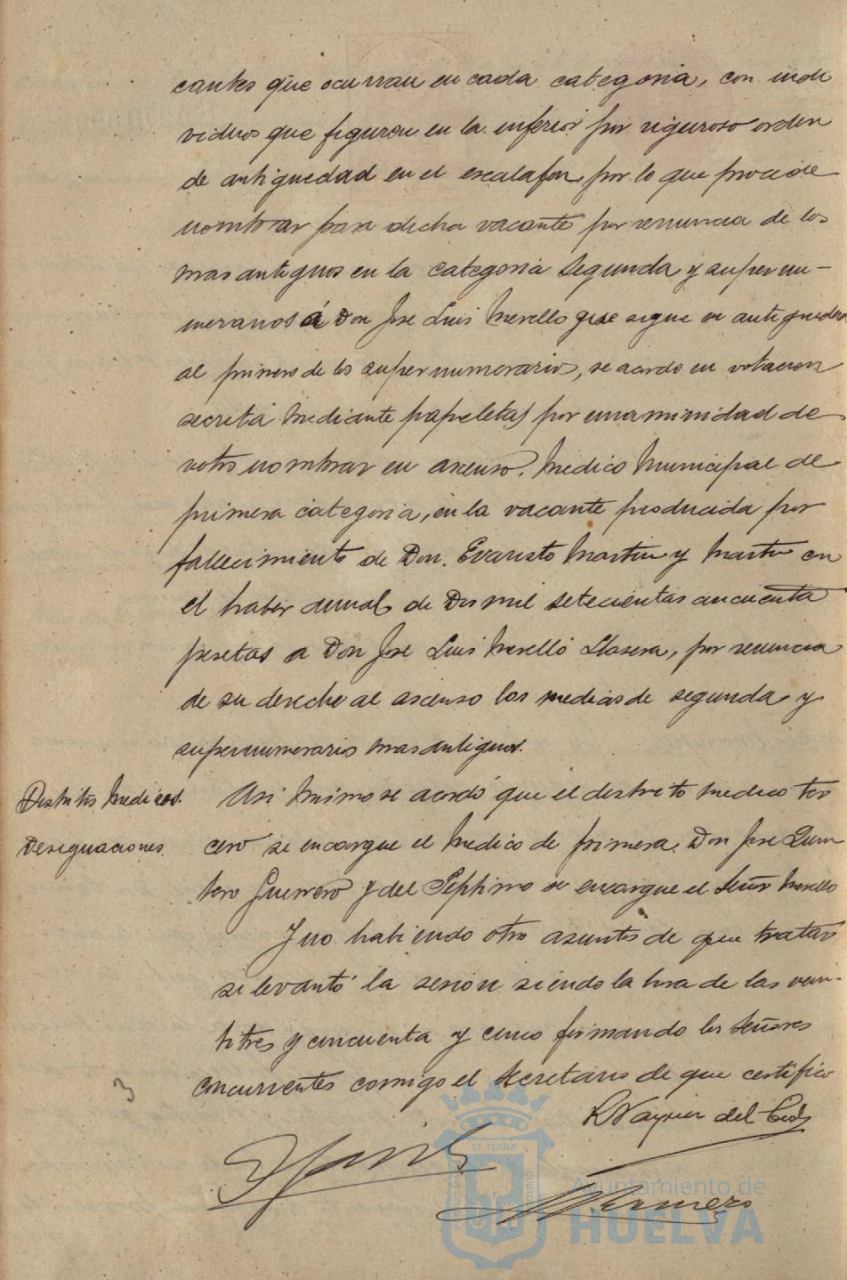 cantes que ocurran en cada categoria, con indi
viduos que figuren en la inferior por riguroso orden
de antiguedad en el escalafon, por lo que procede
nombrar para dicha vacante por renuncia de los
mas antiguos en la categoria segunda y supernu-
merarios á Don Jose Luis Merello que sigue en antiguedad
al primero de los supernumerario, se acordo en votacion
secreta mediante papeletas por unanimidad de
votos nombrar en ascenso, Medico Municipal de
primera categoria, en la vacante producida por
fallecimiento de Don. Evaristo Martin y Martin con
el haber anual de Dos mil setecientas cincuenta
pesetas a Don Jose Luis Merelló Llasera, por renuncia
de su derecho al ascenso los medicos de segunda y
supernumerarios mas antiguos.
Distritos Medicos.
Designaciones
Asi mismo se acordó que el destrito medico ter
cero se encargue el Medico de primera Don Jose Quin
tero Guerrero y del Septimo se encargue el Señor Merello
Y no habiendo otros asuntos de que tratar
se levantó la sesion siendo la hora de las vein-
titres y cincuenta y cinco firmando los Señores
concurrentes comigo el Secretario de que certifico
3
del
Ayuntamiento de
HUELVA